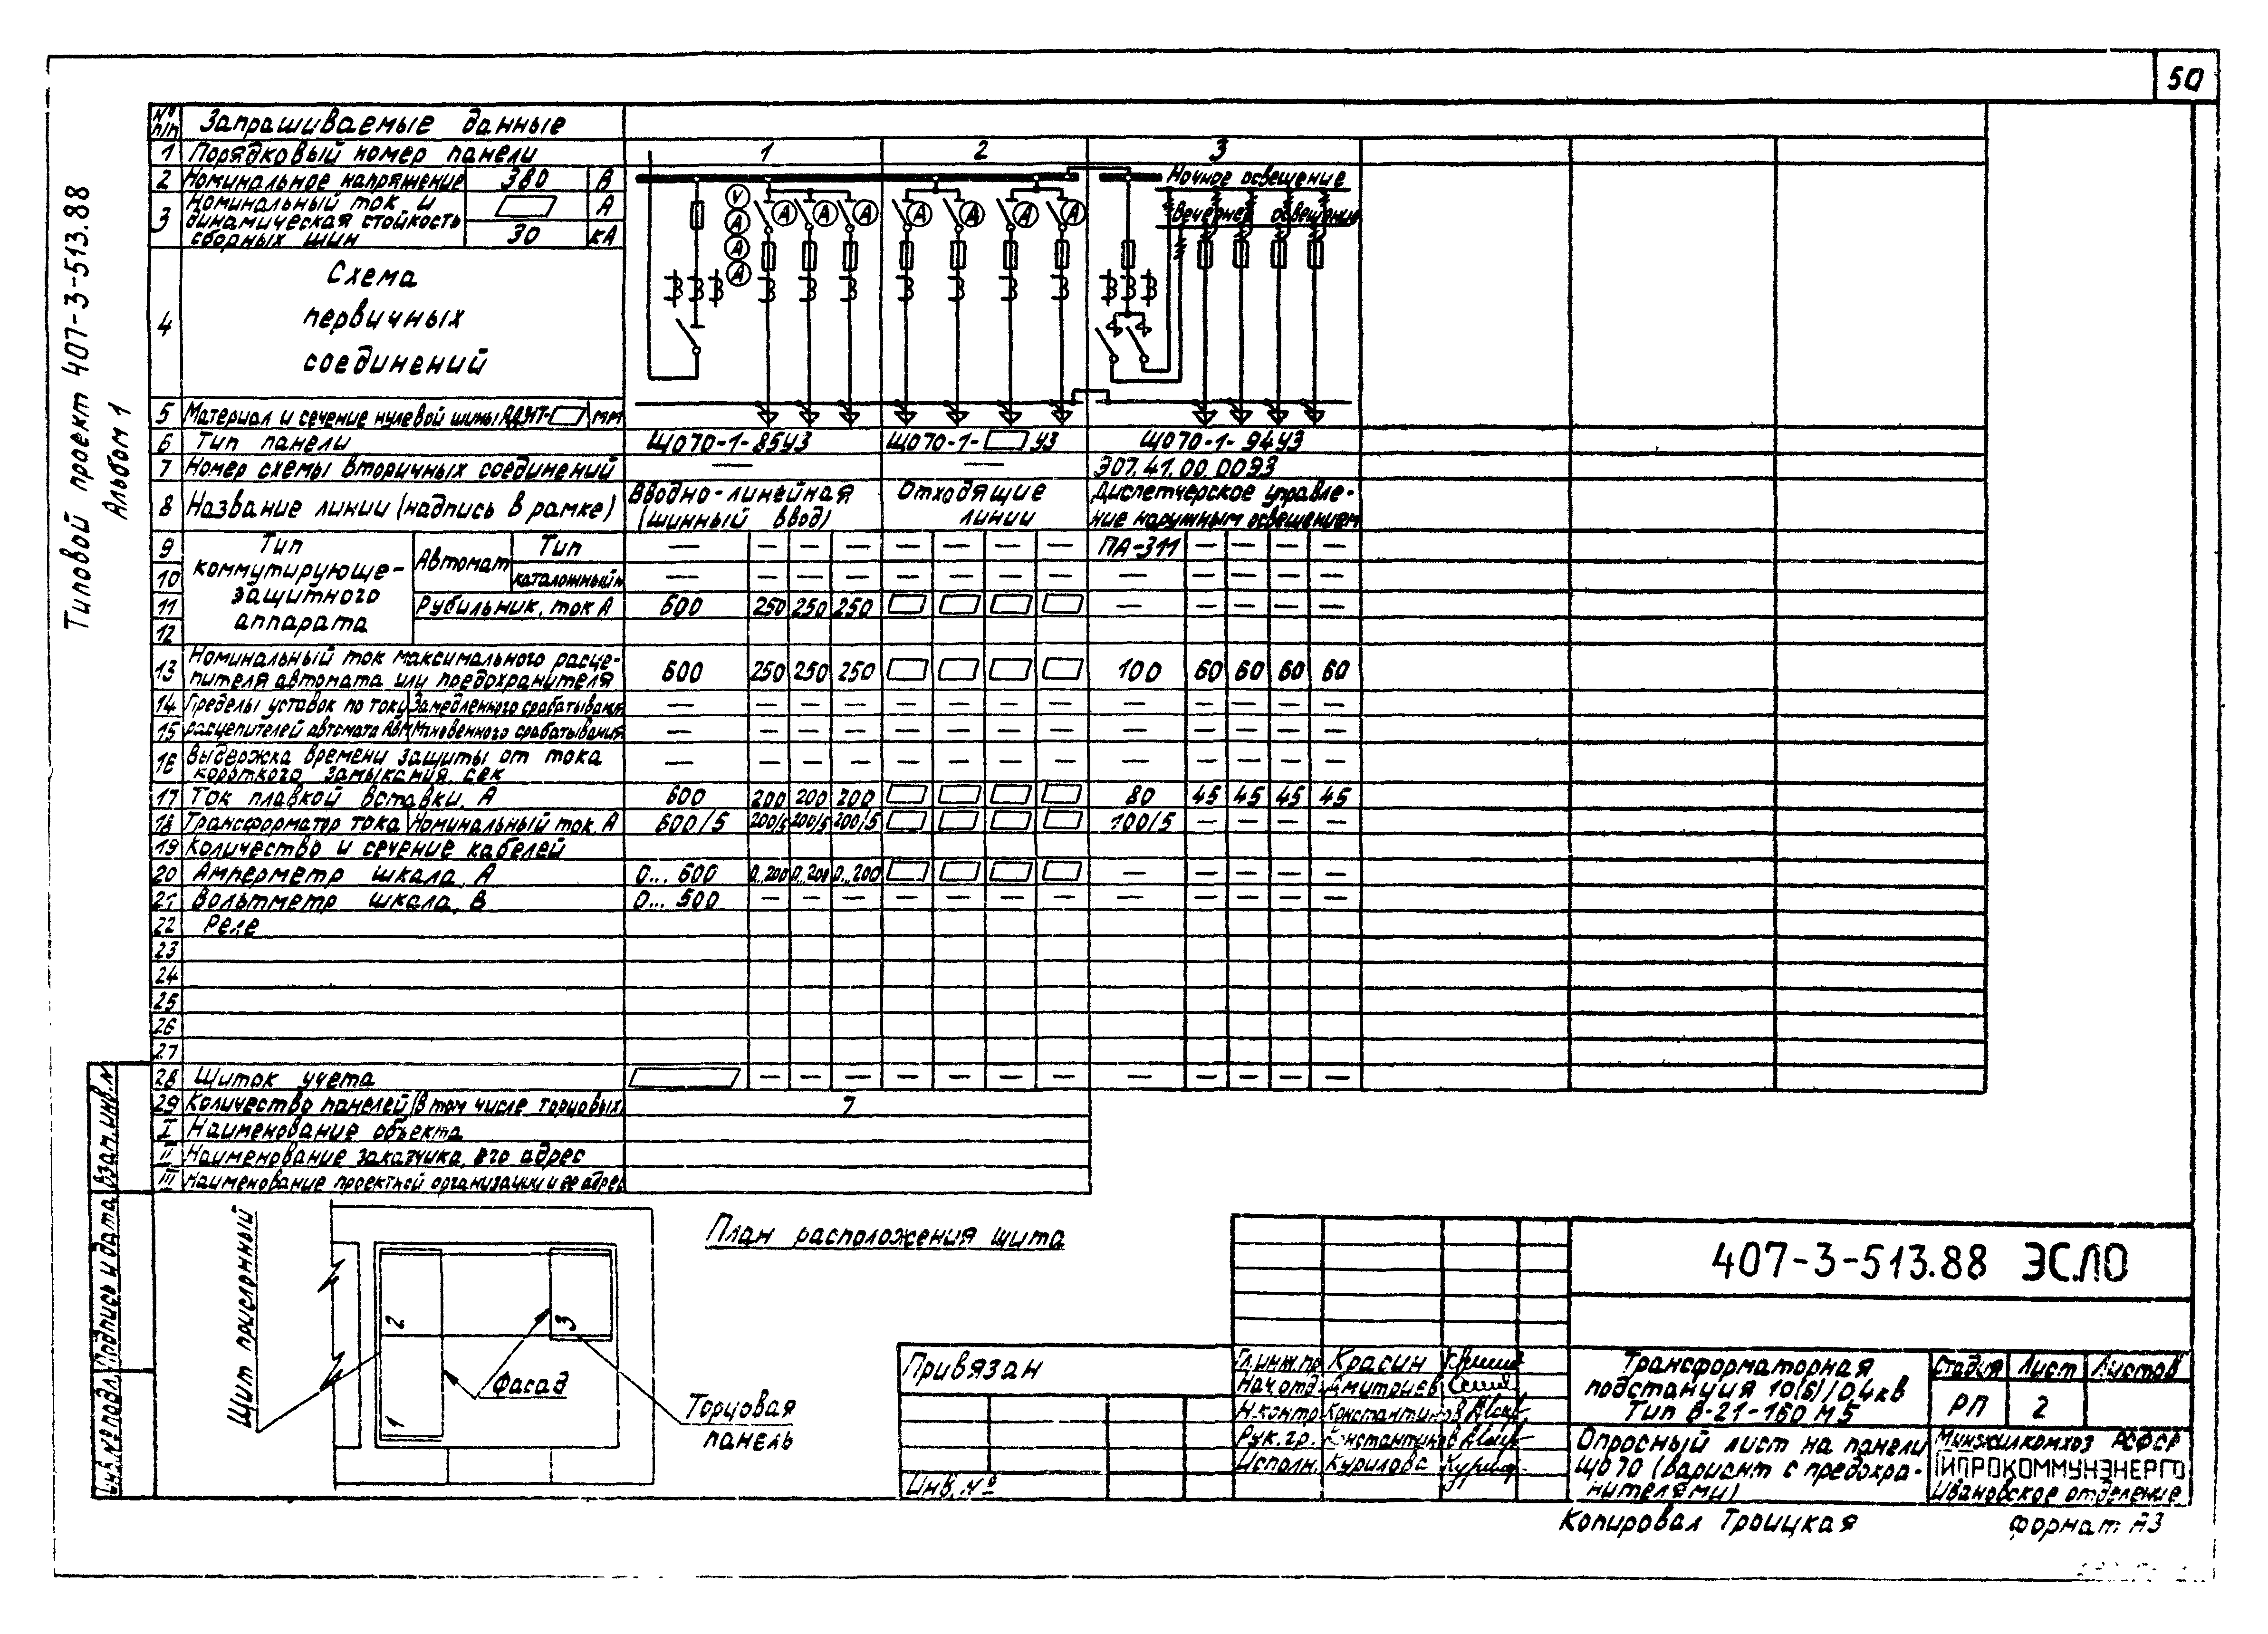 50
Типовой проект 407-3-513.88
Альбом 1
№ п/п Запрашиваемые данные
1 Порядковый номер панели 1 2 3
2 Номинальное напряжение 380 В
3 Номинальный ток и динамическая стойкость сборных шин А
30 кА
4 Схема первичных соединений
V А А А А А А А А А А
Ночное освещение
Вечернее освещение
5 Материал и сечение нулевой шины мм
6 Тип панели ЩО70-1-85У3 ЩО70-1- У3 ЩО70-1-94У3
7 Номер схемы вторичных соединений — — Э07.41.00.00ЭЗ
8 Название линии (надпись в рамке) Вводно-линейная (шинный ввод) Отходящие линии Диспетчерское управление наружным освещением
Тип коммутирующе-защитного аппарата
9 Автомат Тип — — — — — — — — ПА-311 — — — —
10 каталожный № — — — — — — — — — — — — —
11 Рубильник, ток А 600 250 250 250 — — — — —
12
13 Номинальный ток максимального расцепителя автомата или предохранителя 600 250 250 250 100 60 60 60 60
14 Пределы уставок по току Замедленного срабатывания — — — — — — — — — — — — —
15 расцепителей автомата АВМ Мгновенного срабатывания — — — — — — — — — — — — —
16 Выдержка времени защиты от тока короткого замыкания, сек — — — — — — — — — — — — —
17 Ток плавкой вставки, А 600 200 200 200 80 45 45 45 45
18 Трансформатор тока Номинальный ток, А 600/5 200/5 200/5 200/5 100/5 — — — —
19 Количество и сечение кабелей
20 Амперметр шкала, А 0...600 0...200 0...200 0...200 — — — — —
21 Вольтметр шкала, В 0...500 — — — — — — — — — — — —
22 Реле
23
24
25
26
27
28 Щиток учета — — — — — — — — — — — —
29 Количество панелей (в том числе торцовых) 7
I Наименование объекта
II Наименование заказчика, его адрес
III Наименование проектной организации и ее адрес
План расположения щита
Щит прислонный
1 2 3
Фасад
Торцовая панель
Взам.инв.№
Подпись и дата
Инв.№ подл.
Привязан
Инв. №
407-3-513.88 ЭС.ЛО
Гл.инж.пр. Красин
Нач.отд. Дмитриев
Н.контр. Константинов
Рук.гр. Константинов
Исполн. Курилова
Трансформаторная
подстанция 10(6)/0,4кв
Тип В-21-160 М5
Стадия Лист Листов
РП 2
Опросный лист на панели
ЩО70 (вариант с предохра-
нителями)
Минжилкомхоз РСФСР
ГИПРОКОММУНЭНЕРГО
Ивановское отделение
Копировал Троицкая
Формат А3